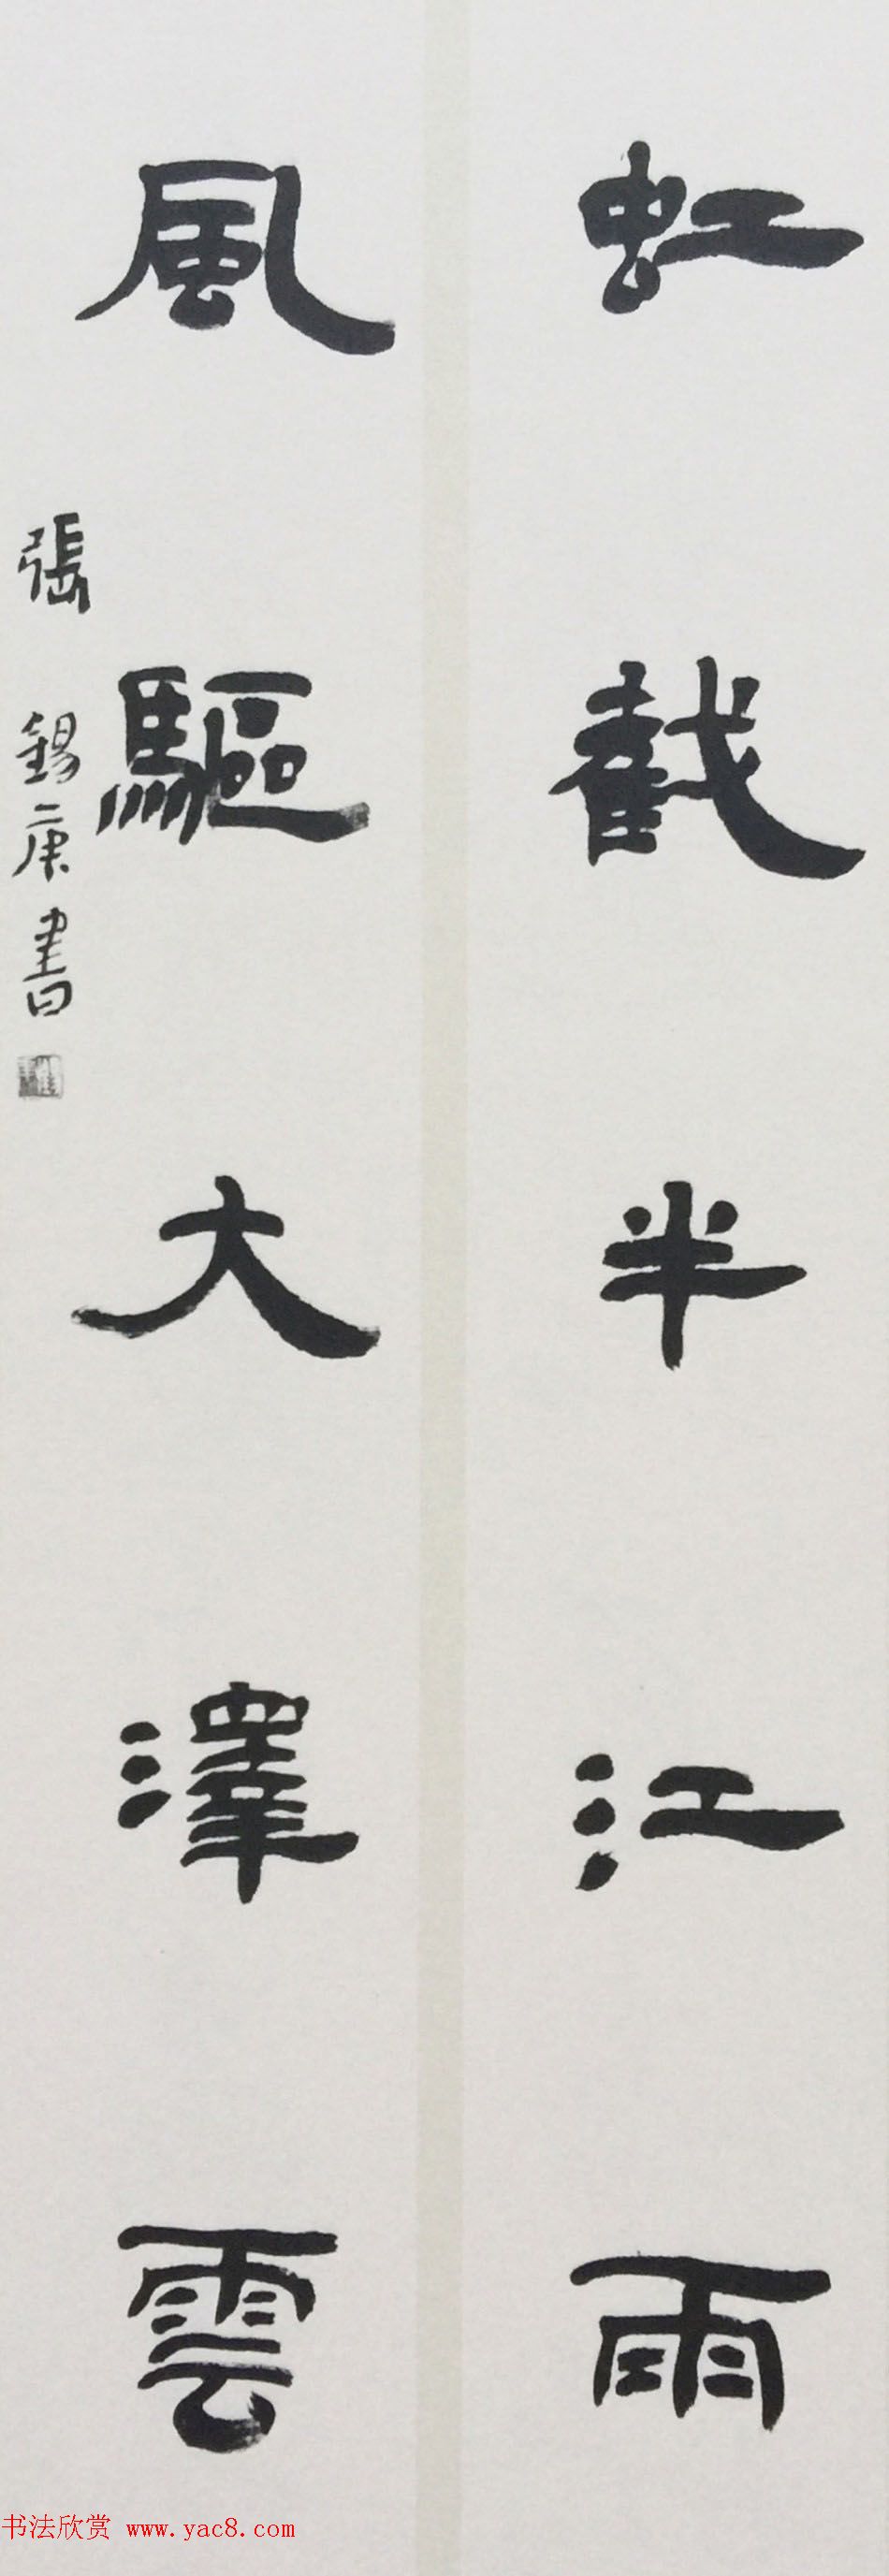 虹截半江雨
風驅大澤雲
張錫庚書
书法欣赏 www.yac8.com